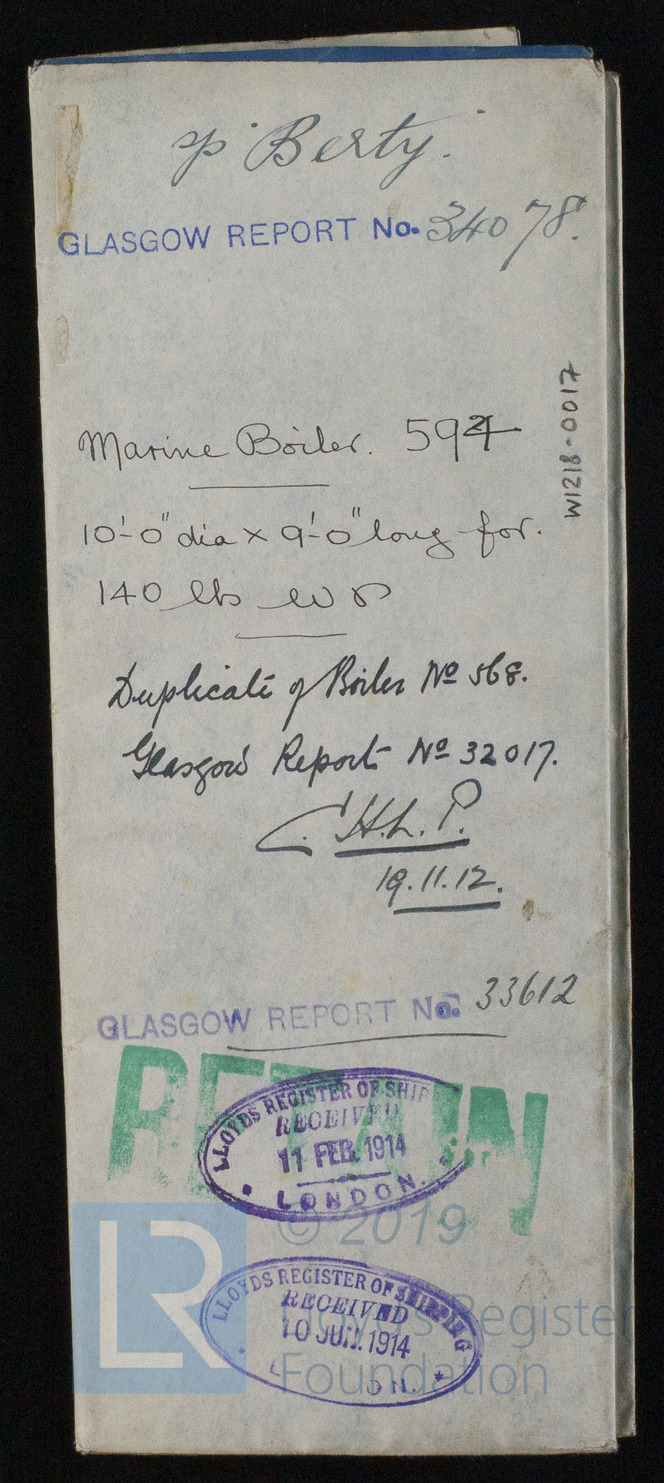 "Berty".
GLASGOW REPORT No. 34078.
W1218-0017
Marine Boiler. 594
10'-0" dia x 9'-0" long for.
140 lbs W P
Duplicate of Boiler No 568.
Glasgow Report No 32017.
C.H.L.P.
19.11.12.
GLASGOW REPORT No. 33612
RETAIN
LLOYDS REGISTER OF SHIP
RECEIVED
11 FEB. 1914
LONDON.
© 2019
LR
LLOYDS REGISTER OF SHIPPING
RECEIVED
10 JUN. 1914
L ON.
Lloyd's Register
Foundation